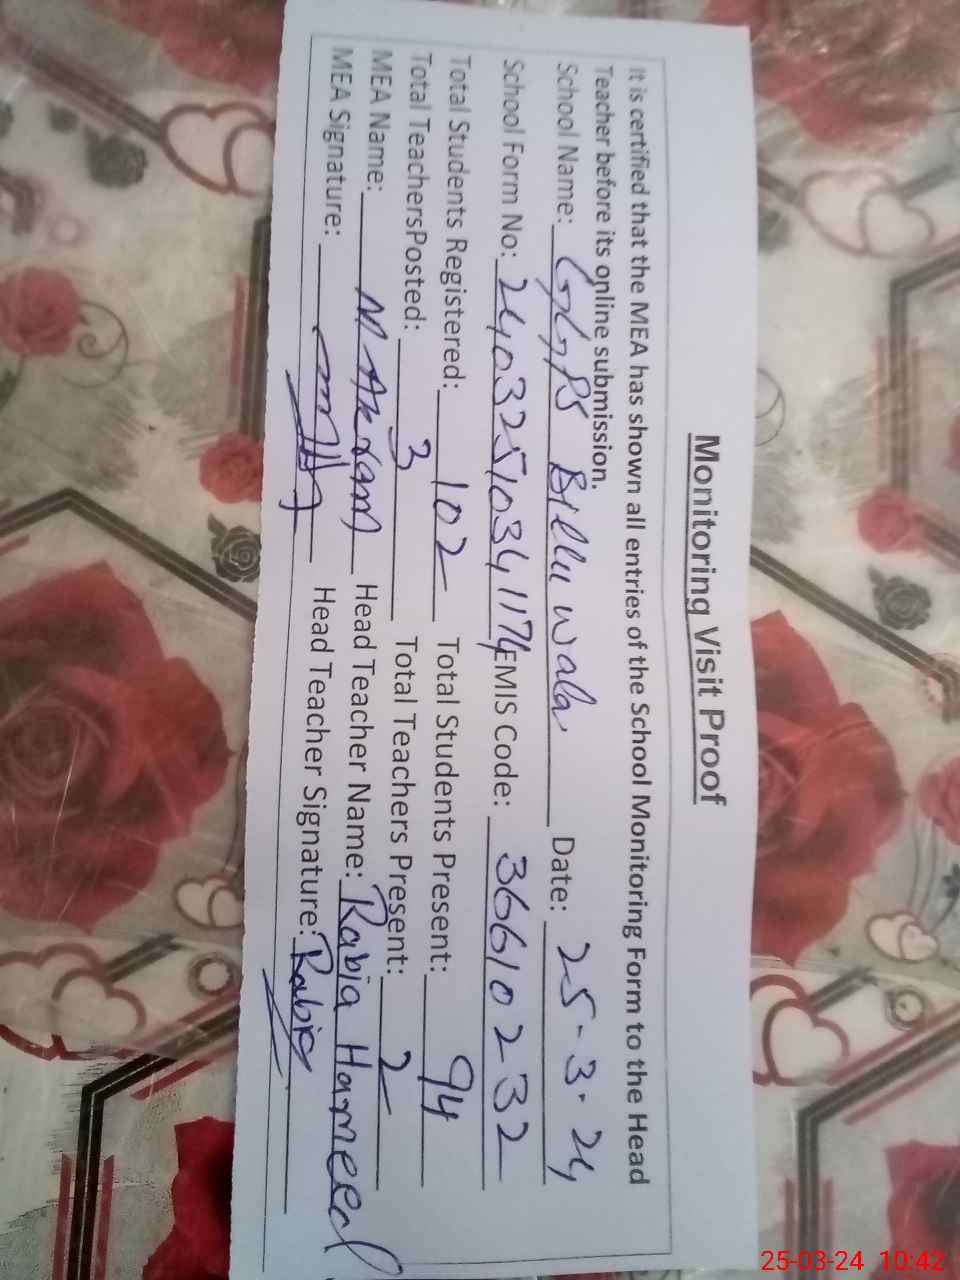 Monitoring Visit Proof
It is certified that the MEA has shown all entries of the School Monitoring Form to the Head
Teacher before its online submission.
School Name: GGPS Billu wala Date: 25-3-24
School Form No: 24032510341174 EMIS Code: 36610232
Total Students Registered: 102 Total Students Present: 94
Total TeachersPosted: 3 Total Teachers Present: 2
MEA Name: M Akram Head Teacher Name: Rabia Hameed
MEA Signature: Head Teacher Signature: Rabia
25-03-24 10:42